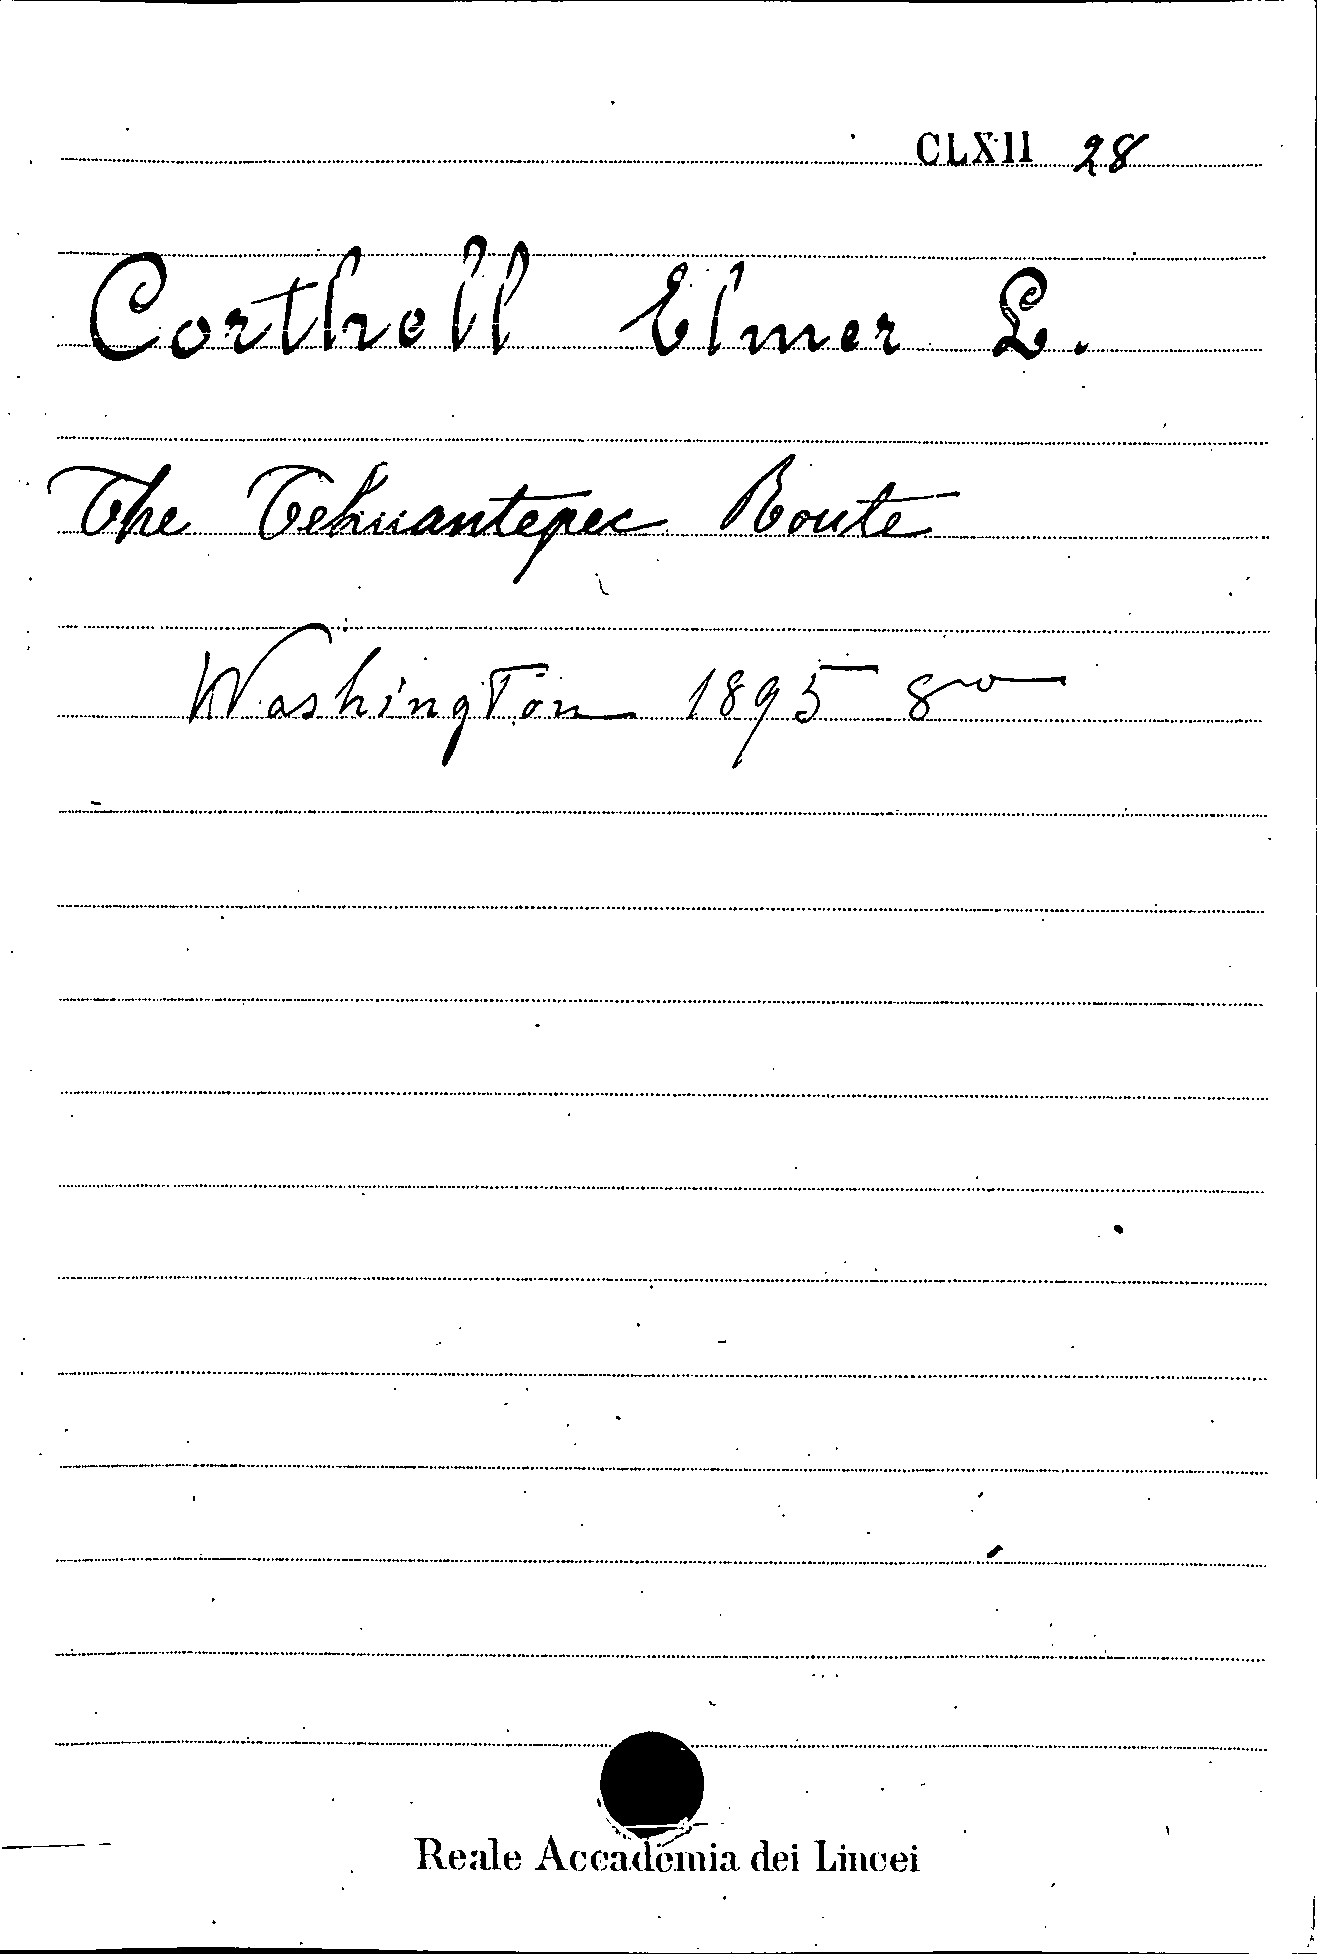 CLXII 28
Corthell Elmer L.
The Tehuantepec Route
Washington 1895 8vo
Reale Accademia dei Lincei